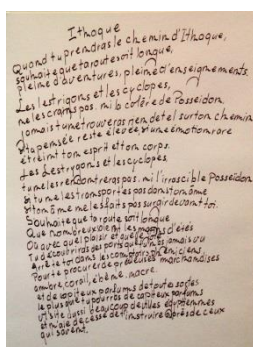 Ithaque
Quand tu prendras le chemin d'Ithaque,
souhaite que ta route soit longue,
pleine d'aventures, pleine d'enseignements.
Les lestrigons et les cyclopes,
ne les crains pas, ni la colère de Posseidon,
jamais tu ne trouveras rien de tel sur ton chemin
si ta pensée reste élevée, si une émotion rare
étreint ton esprit et ton corps.
Les Lestrygons et les cyclopes
tu ne les rencontreras pas, ni l'irascible Posseidon
si tu ne les transportes pas dans ton âme
si ton âme ne les fait pas surgir devant toi.
Souhaite que ta route soit longue
Que nombreux soient les matins d'étés
Où avec quel plaisir et quelle joie
Tu découvriras des ports que tu n'as jamais vu
Arrête toi dans les comptoirs phéniciens
Pour te procurer de précieuses marchandises
ambre, corail, ébène, nacre
et de capiteux parfums de toute sortes
le plus que tu pourras de capiteux parfums
visite aussi beaucoup de villes égyptiennes
et n'aie de cesse de t'instruire auprès de ceux
qui savent.